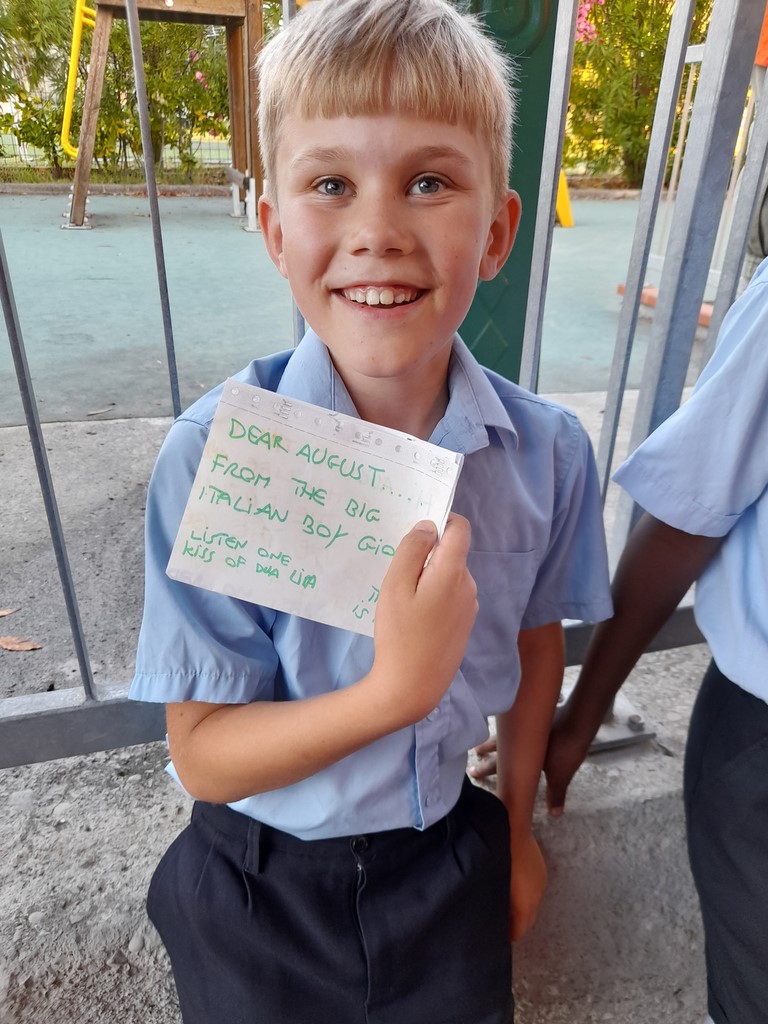 DEAR AUGUST...
FROM THE BIG
ITALIAN BOY GIO
LISTEN ONE
KISS OF DUA LIPA
IS